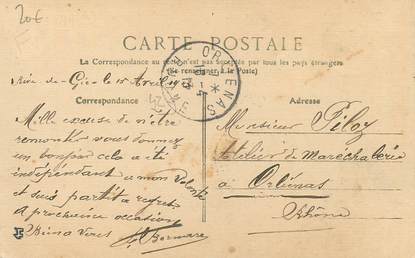 20€
CARTE POSTALE
La Correspondance au recto n'est pas acceptée par tous les pays étrangers
(Se renseigner à la Poste)
ORLIENAS
Rive-de-Gier le 15 Avril
Correspondance
Adresse
Mille excuse de n'être
remonté vous donner
un bonjour cela a été
indépendant a mon volonté
et suis partit a regret
a prochaine occasion
Bien a Vous
Monsieur Piloz
Atelier de Maréchalerie
à Orliénas
Rhône